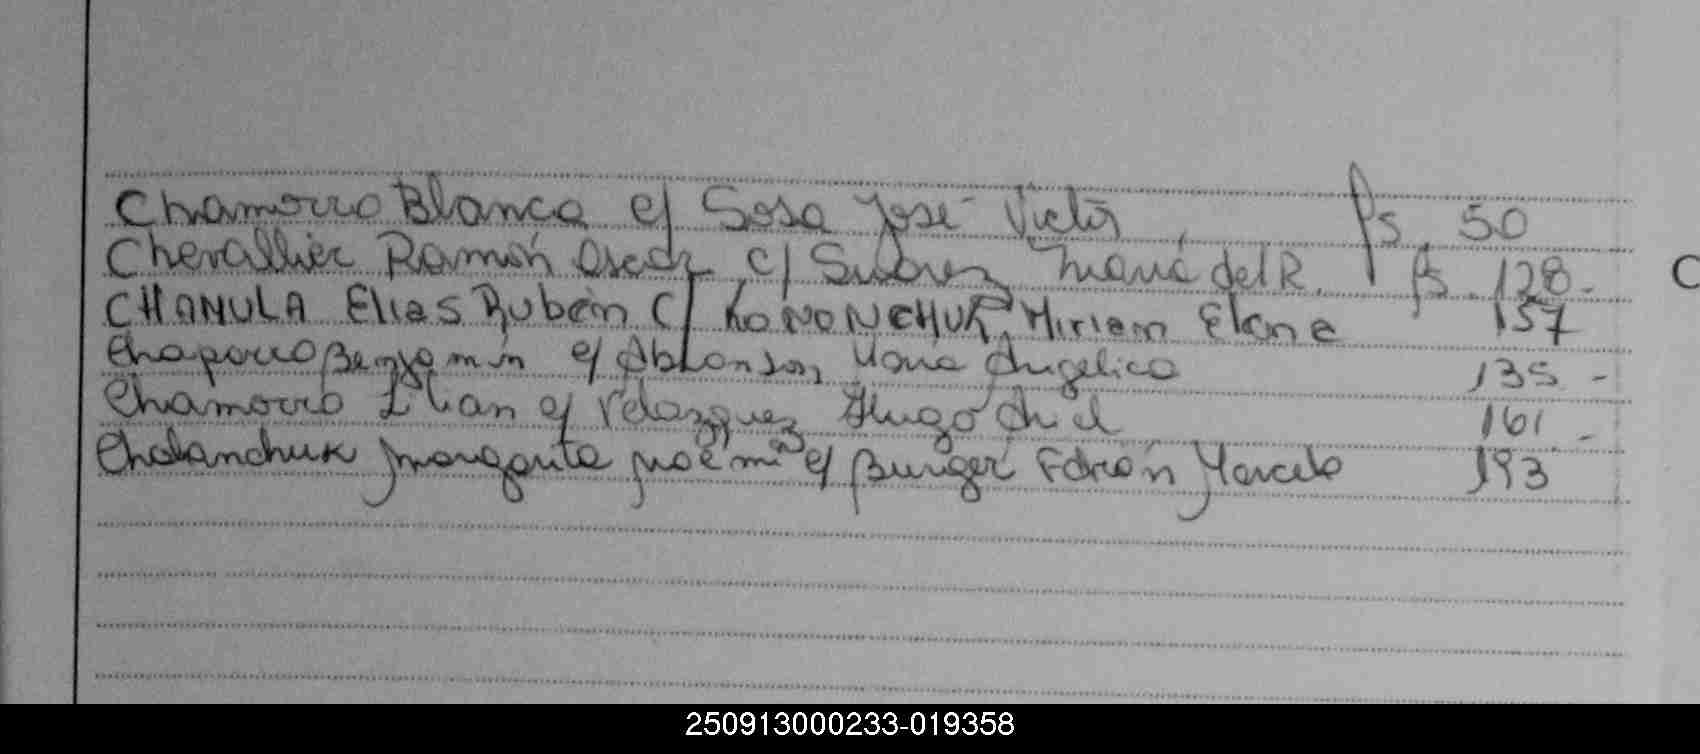 Chamorro Blanca c/ Sosa José Victor, fs. 50
Chevallier Ramón Oscar c/ Suárez María del R. fs. 128-
CHAMULA Elias Ruben C/ KONONCHUK Miriam Elena 157
Chaparro Benjamín c/ María Angelica 135-
Chamorro Lilian c/ Velazquez Hugo Ariel 161-
Chalanchuk Margarita Noemí c/ Burger Fabián Marcelo 193
C
250913000233-019358